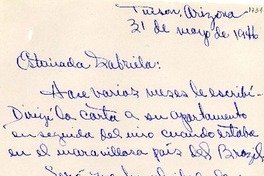 1731
Tucson, Arizona
31 de mayo de 1946
Estimada Gabriela:
Hace varios meses le escribí.
Dirigí la carta a su apartamento
en seguida del vino cuando estaba
en el maravilloso país del Brazil.